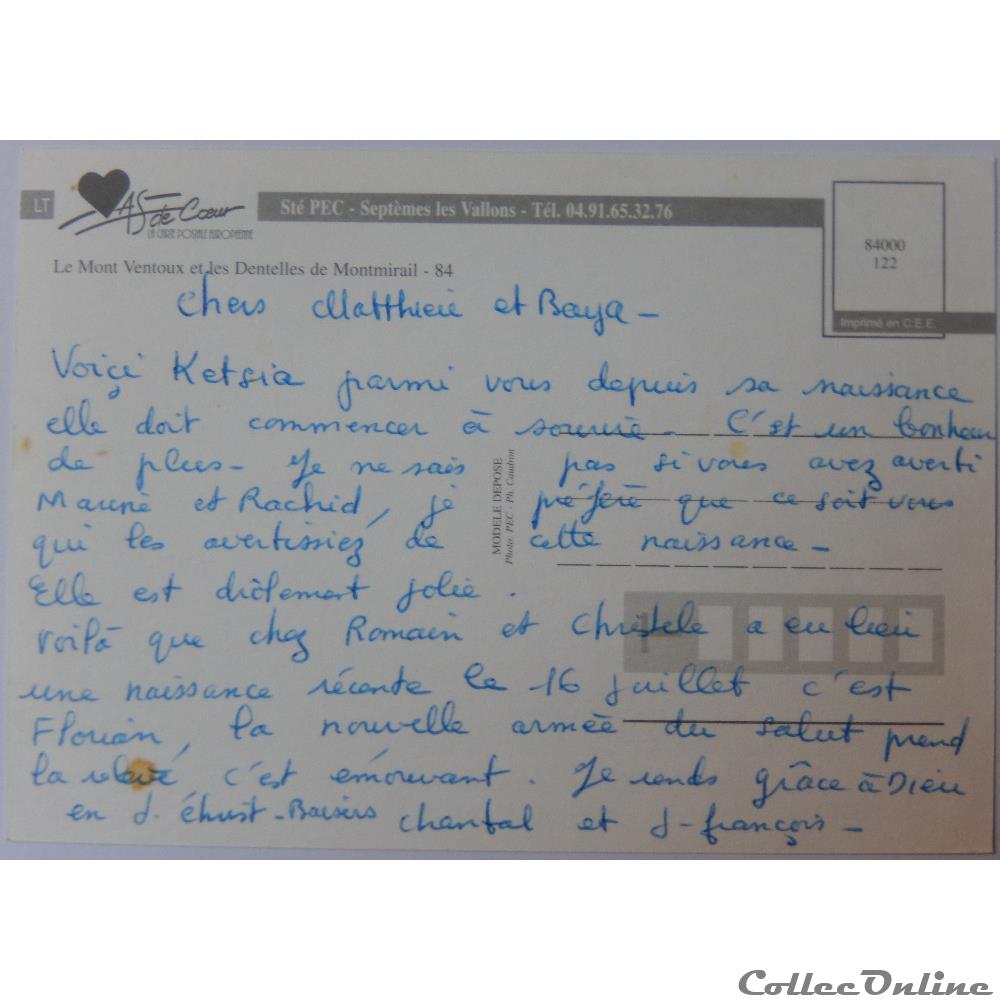 LT
As de Cœur
LA CARTE POSTALE EUROPÉENNE
Sté PEC - Septèmes les Vallons - Tél. 04.91.65.32.76
84000
122
Imprimé en C.E.E.
Le Mont Ventoux et les Dentelles de Montmirail - 84
Chers Matthieu et Baya -
Voiçi Ketsia parmi vous depuis sa naissance
elle doit commencer à sourire - C'est un bonheur
de plus - Je ne sais pas si vous avez averti
et Rachid, je préfère que ce soit vous
qui les avertissiez de cette naissance -
Elle est drôlement jolie.
Voilà que chez Romain et Christele a eu lieu
une naissance récente le 16 juillet c'est
Florian, la nouvelle armée du salut prend
la relève c'est émouvant. Je rends grâce à Dieu
en J. Christ - Baisers Chantal et J-françois -
MODELE DEPOSE
Photo: PEC - Ph. Caudron
CollecOnline